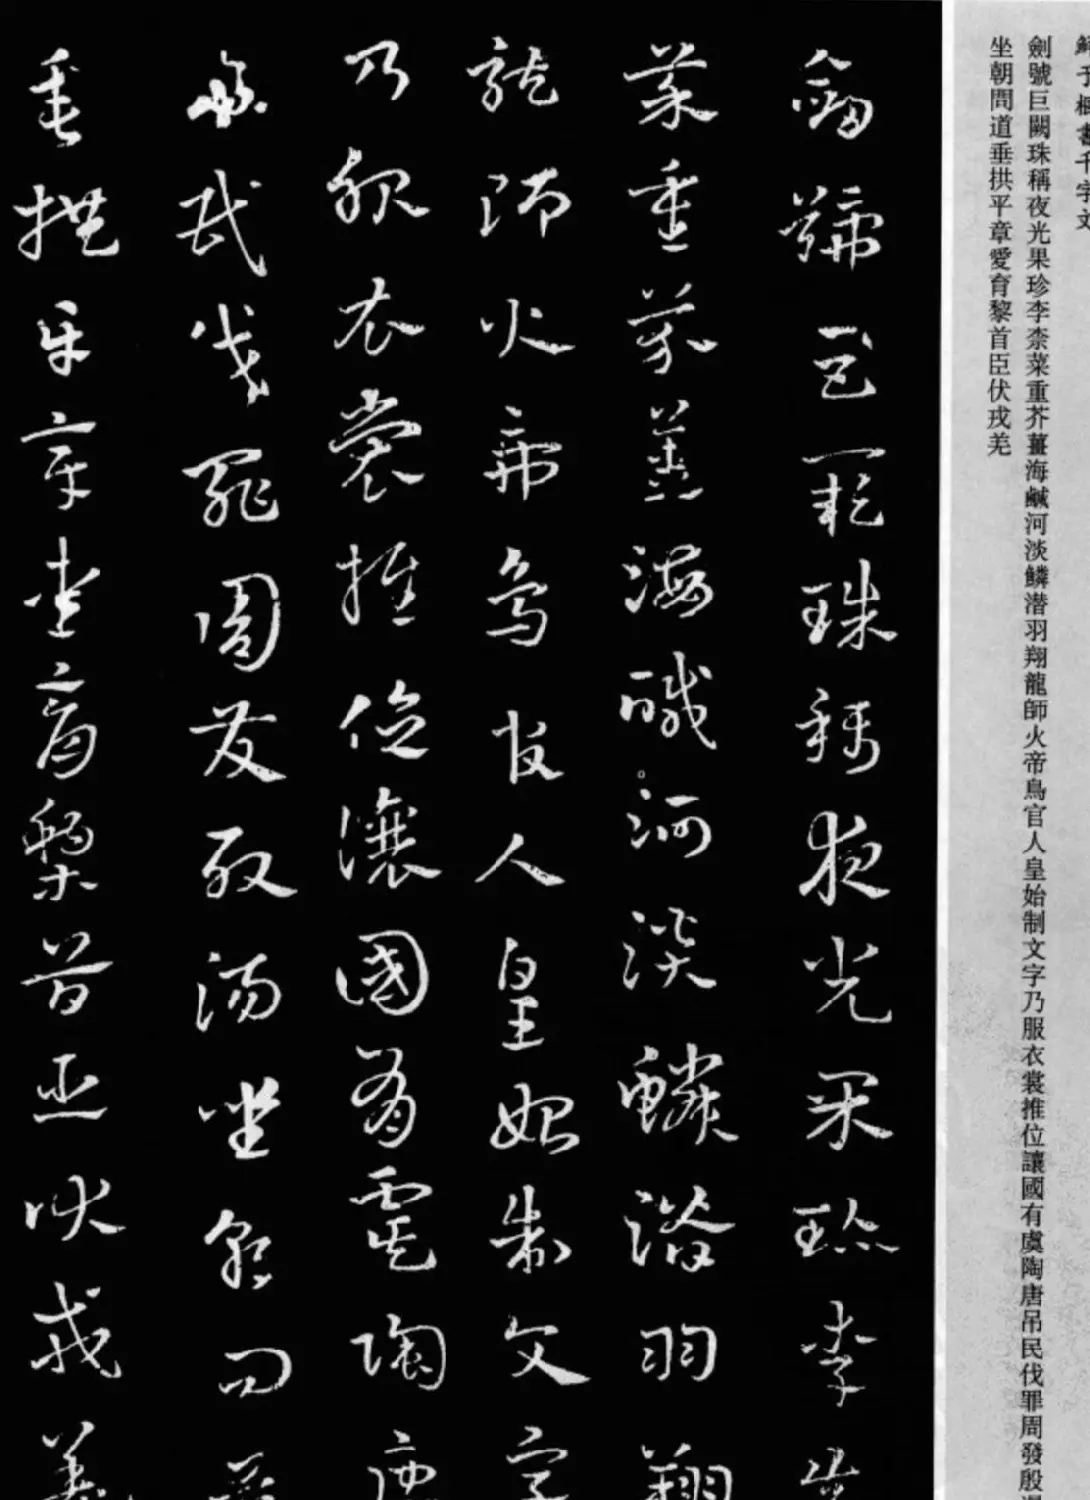 鮮于樞書千字文
劍號巨闕珠稱夜光果珍李柰菜重芥薑海鹹河淡鱗潜羽翔龍師火帝鳥官人皇始制文字乃服衣裳推位讓國有虞陶唐吊民伐罪周發殷湯
坐朝問道垂拱平章愛育黎首臣伏戎羌
劍號巨闕珠稱夜光果珍李柰
菜重芥薑海鹹河淡鱗潛羽翔
龍師火帝鳥官人皇始制文字
乃服衣裳推位讓國有虞陶唐
吊民伐罪周發殷湯坐朝問道
垂拱平章愛育黎首臣伏戎羌